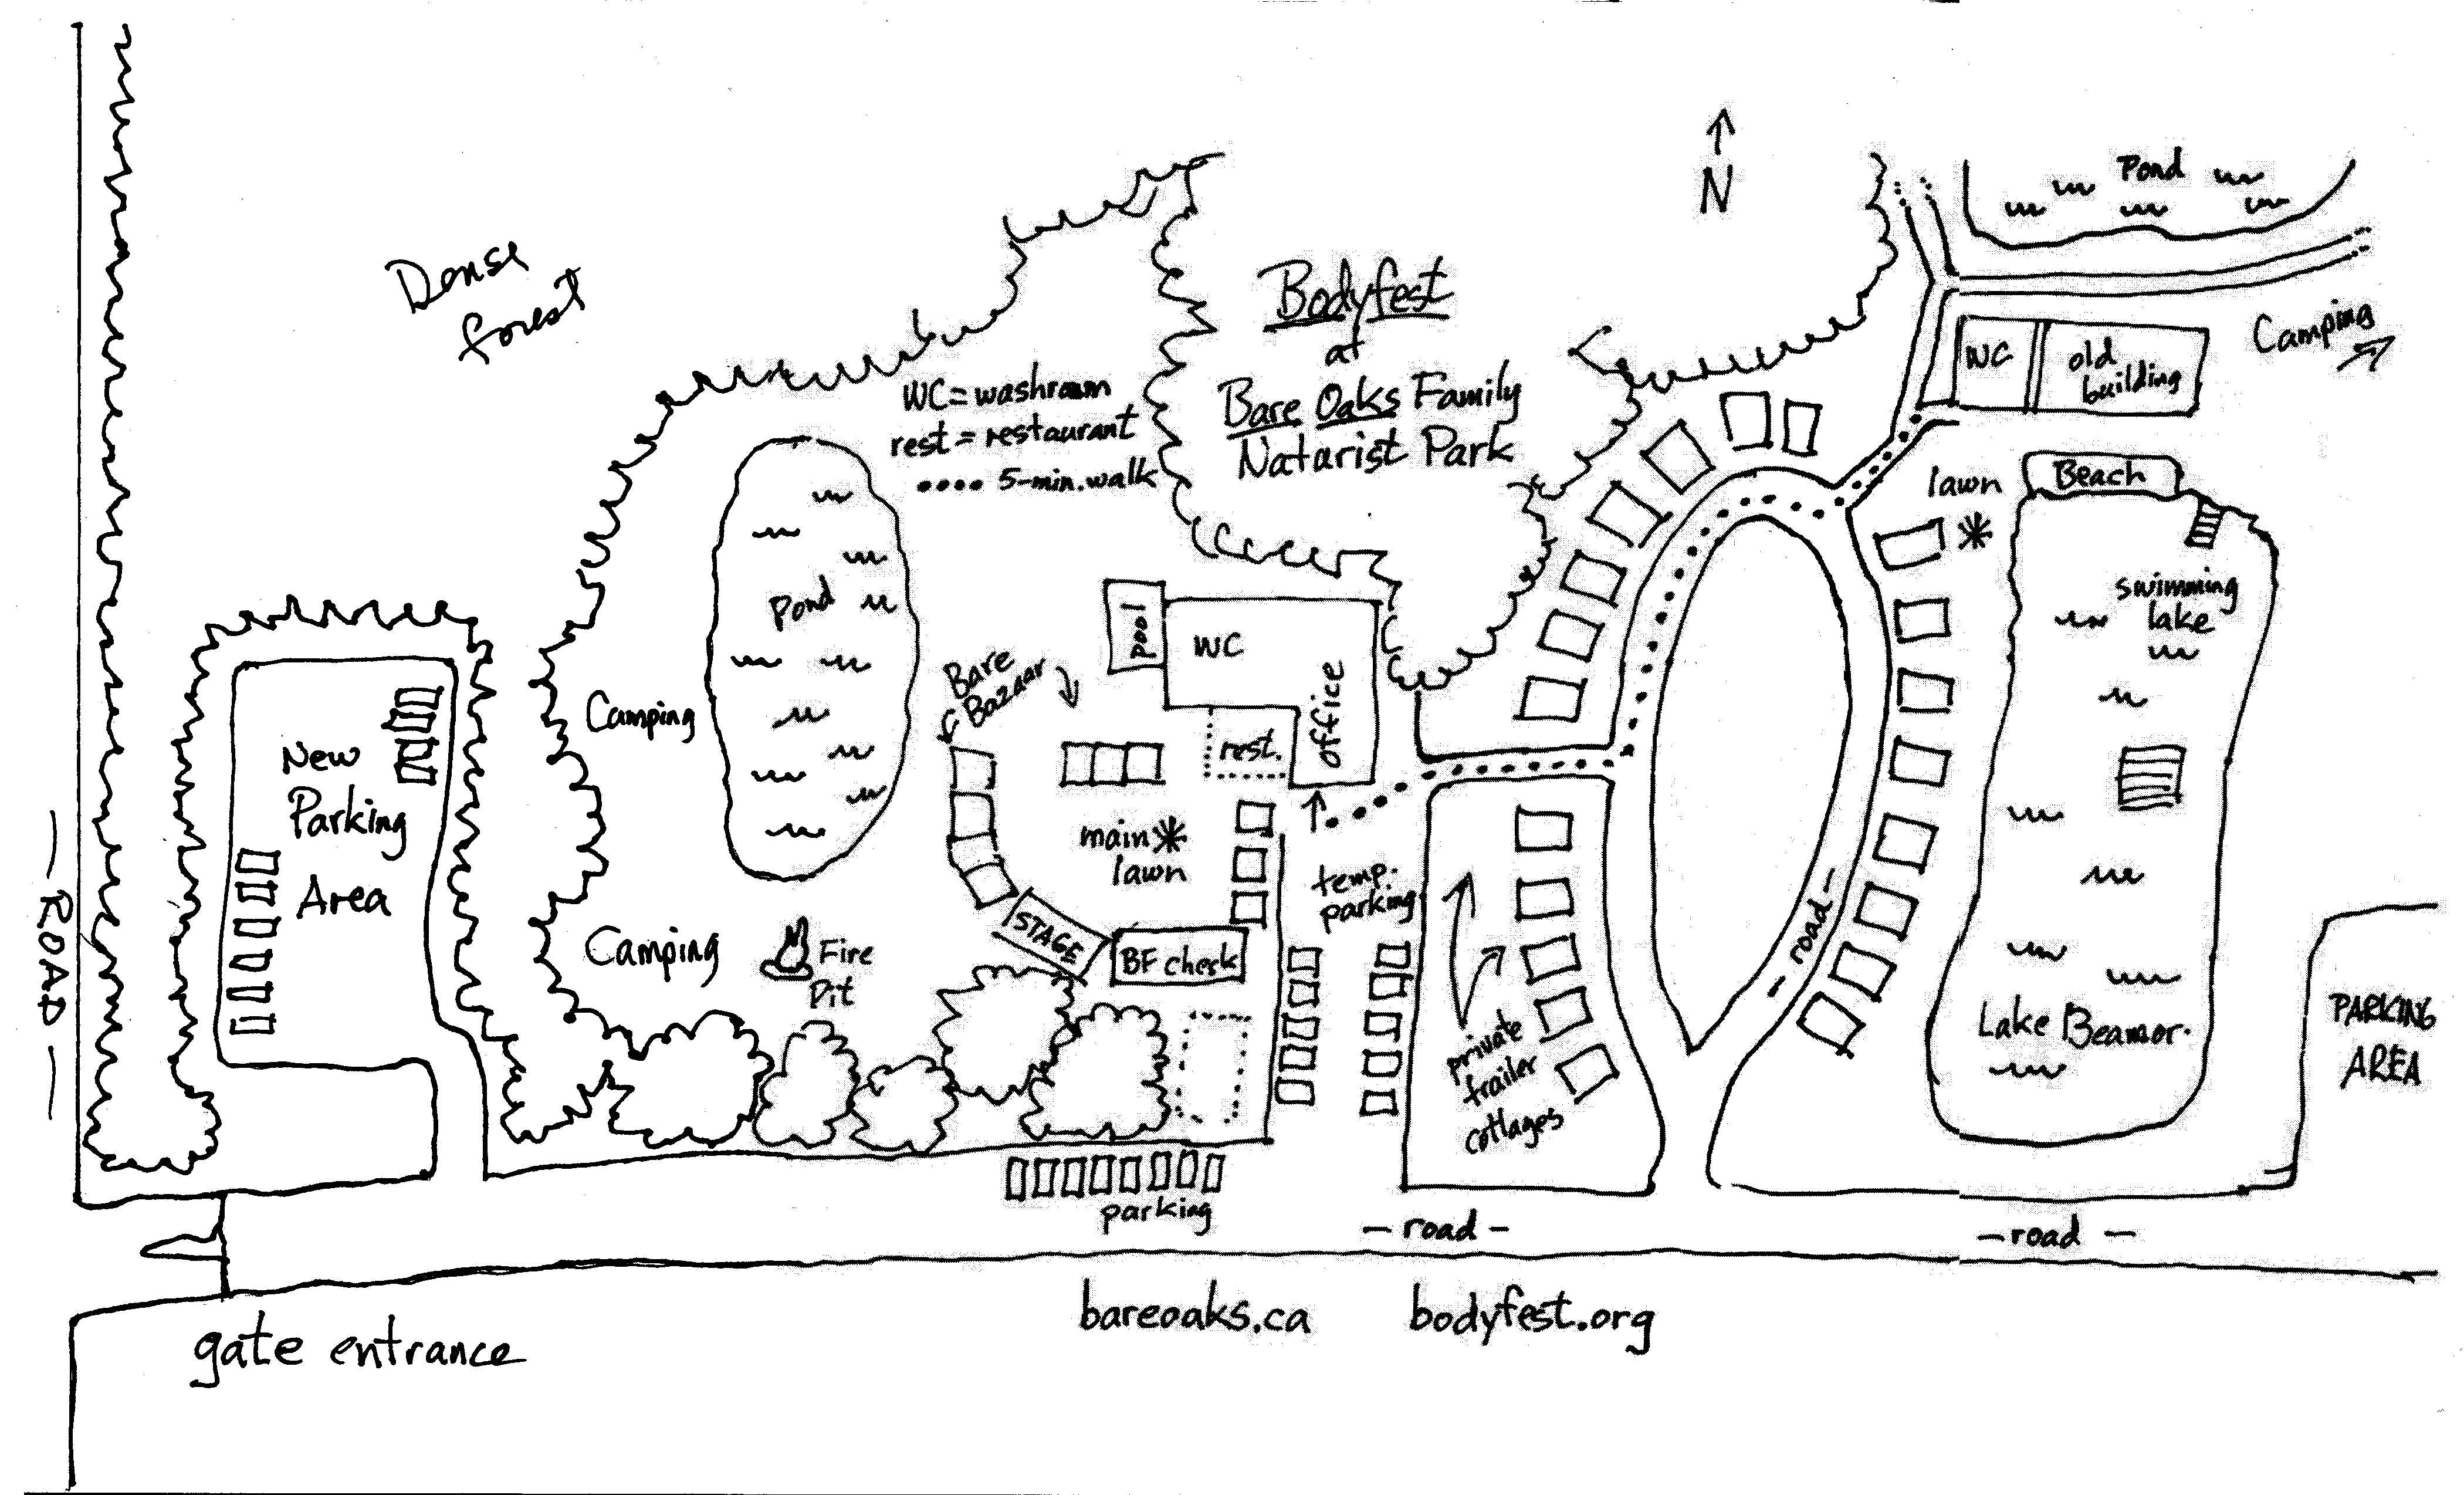 Dense
forest
Bodyfest
at
Bare Oaks Family
Naturist Park
N
Pond
WC = washroom
rest = restaurant
•••• 5-min. walk
WC
old
building
Camping
lawn
Beach
swimming
lake
Lake Beamor.
PARKING
AREA
Pond
Camping
Camping
Fire
Pit
Bare
Bazaar
pool
WC
office
rest.
main
lawn
STAGE
BF check
temp.
parking
private
trailer
cottages
- road -
New
Parking
Area
- ROAD -
parking
- road -
- road -
gate entrance
bareoaks.ca
bodyfest.org